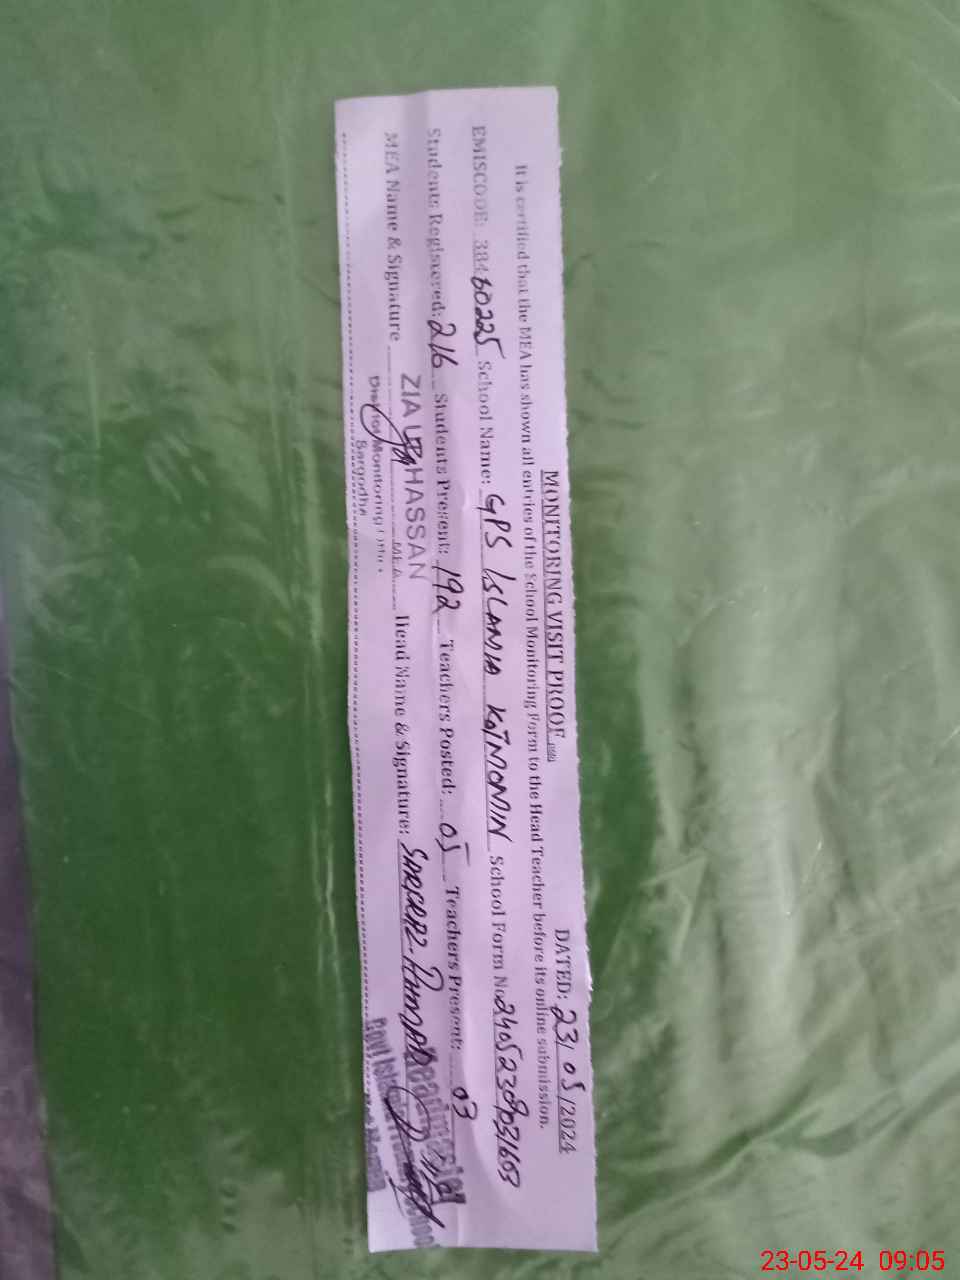 MONITORING VISIT PROOF
DATED: 23/05/2024
It is certified that the MEA has shown all entries of the School Monitoring Form to the Head Teacher before its online submission.
EMISCODE: 38460225 School Name: GPS ISLAMIA KOTMOMIN School Form No
Students Registered: 216 Students Present: 192 Teachers Posted: 05 Teachers Present: 03
MEA Name & Signature ZIA HASSAN MEA Head Name & Signature:
District Monitoring
Sargodha
23-05-24 09:05